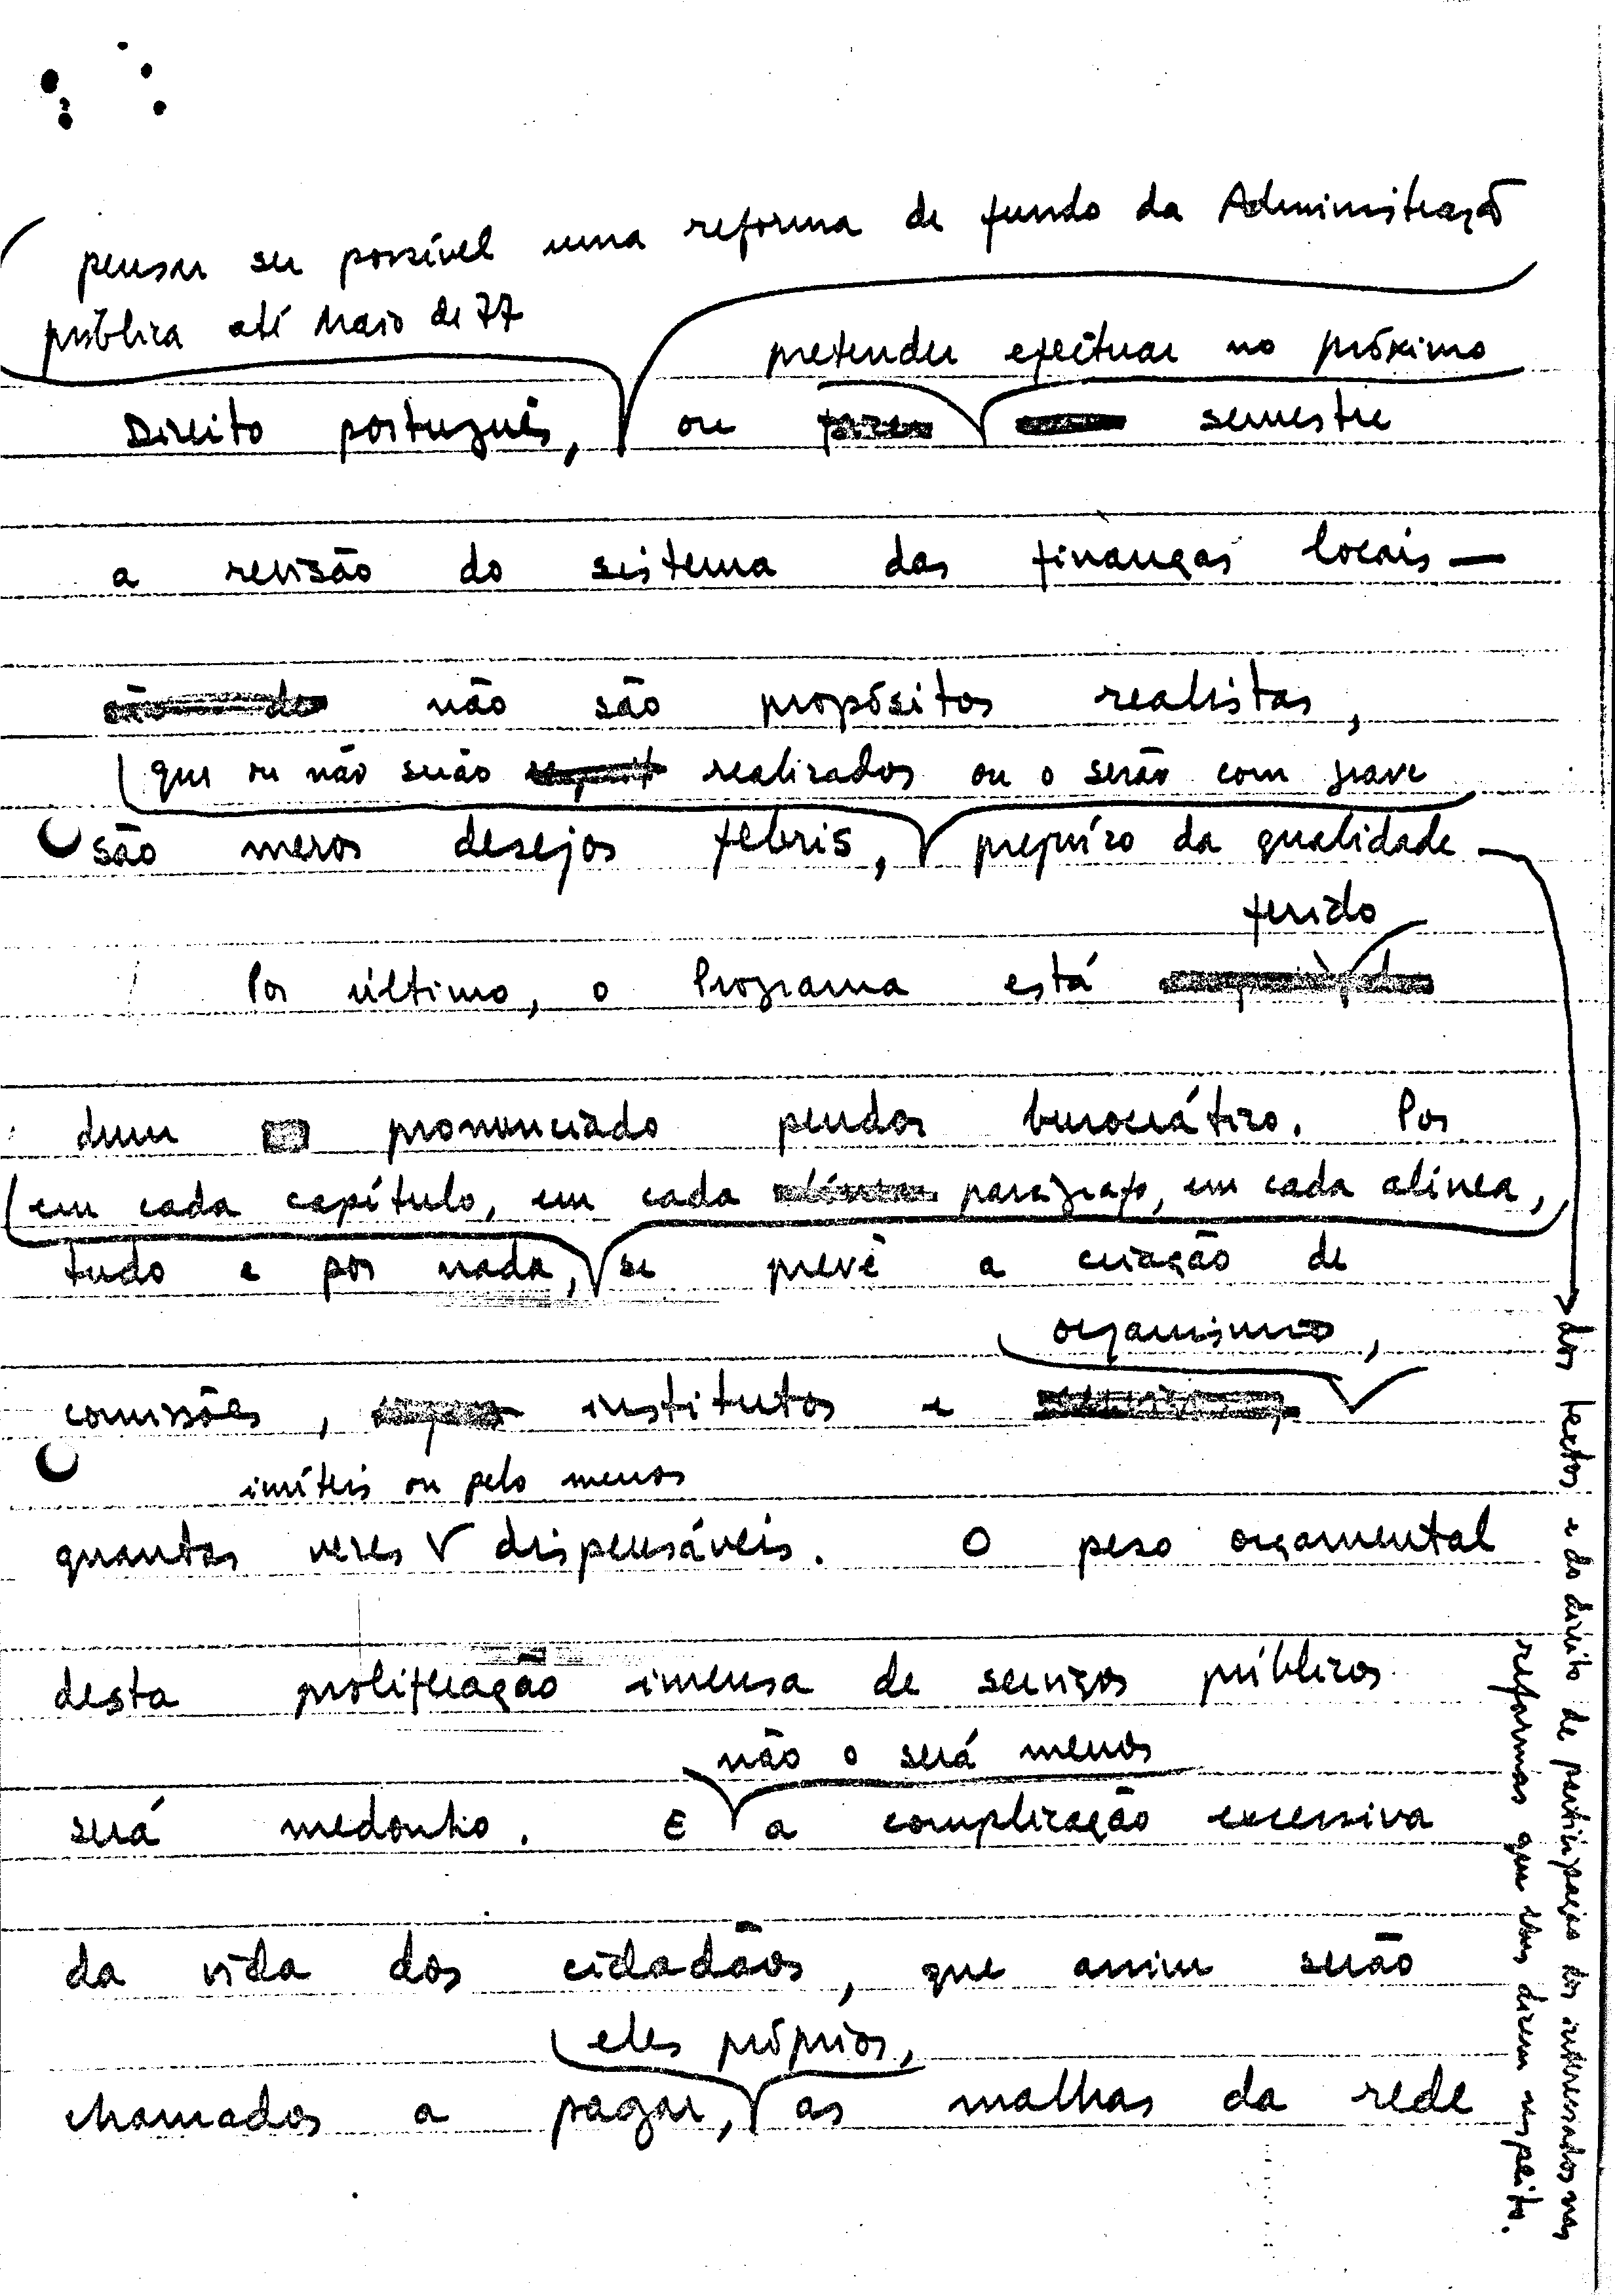 pensar ser possível uma reforma de fundo da Administração
pública até Maio de 77
pretender efectuar no próximo
Direito português, ou semestre
a revisão do sistema das finanças locais —
não são propósitos realistas,
que ou não serão realizados ou o serão com grave
são meros desejos febris, prejuízo da qualidade
ferido
Por último, o Programa está
dum pronunciado pendor burocrático. Por
em cada capítulo, em cada parágrafo, em cada alínea,
tudo e por nada, se prevê a criação de
organismos,
comissões, institutos e
inúteis ou pelo menos
quantas vezes dispensáveis. O peso orçamental
desta proliferação imensa de serviços públicos
não o será menos
será medonho. E a complicação excessiva
da vida dos cidadãos, que assim serão
eles próprios,
chamados a pagar, as malhas da rede
dos textos e do direito de participação dos interessados nas
reformas que lhes dizem respeito.